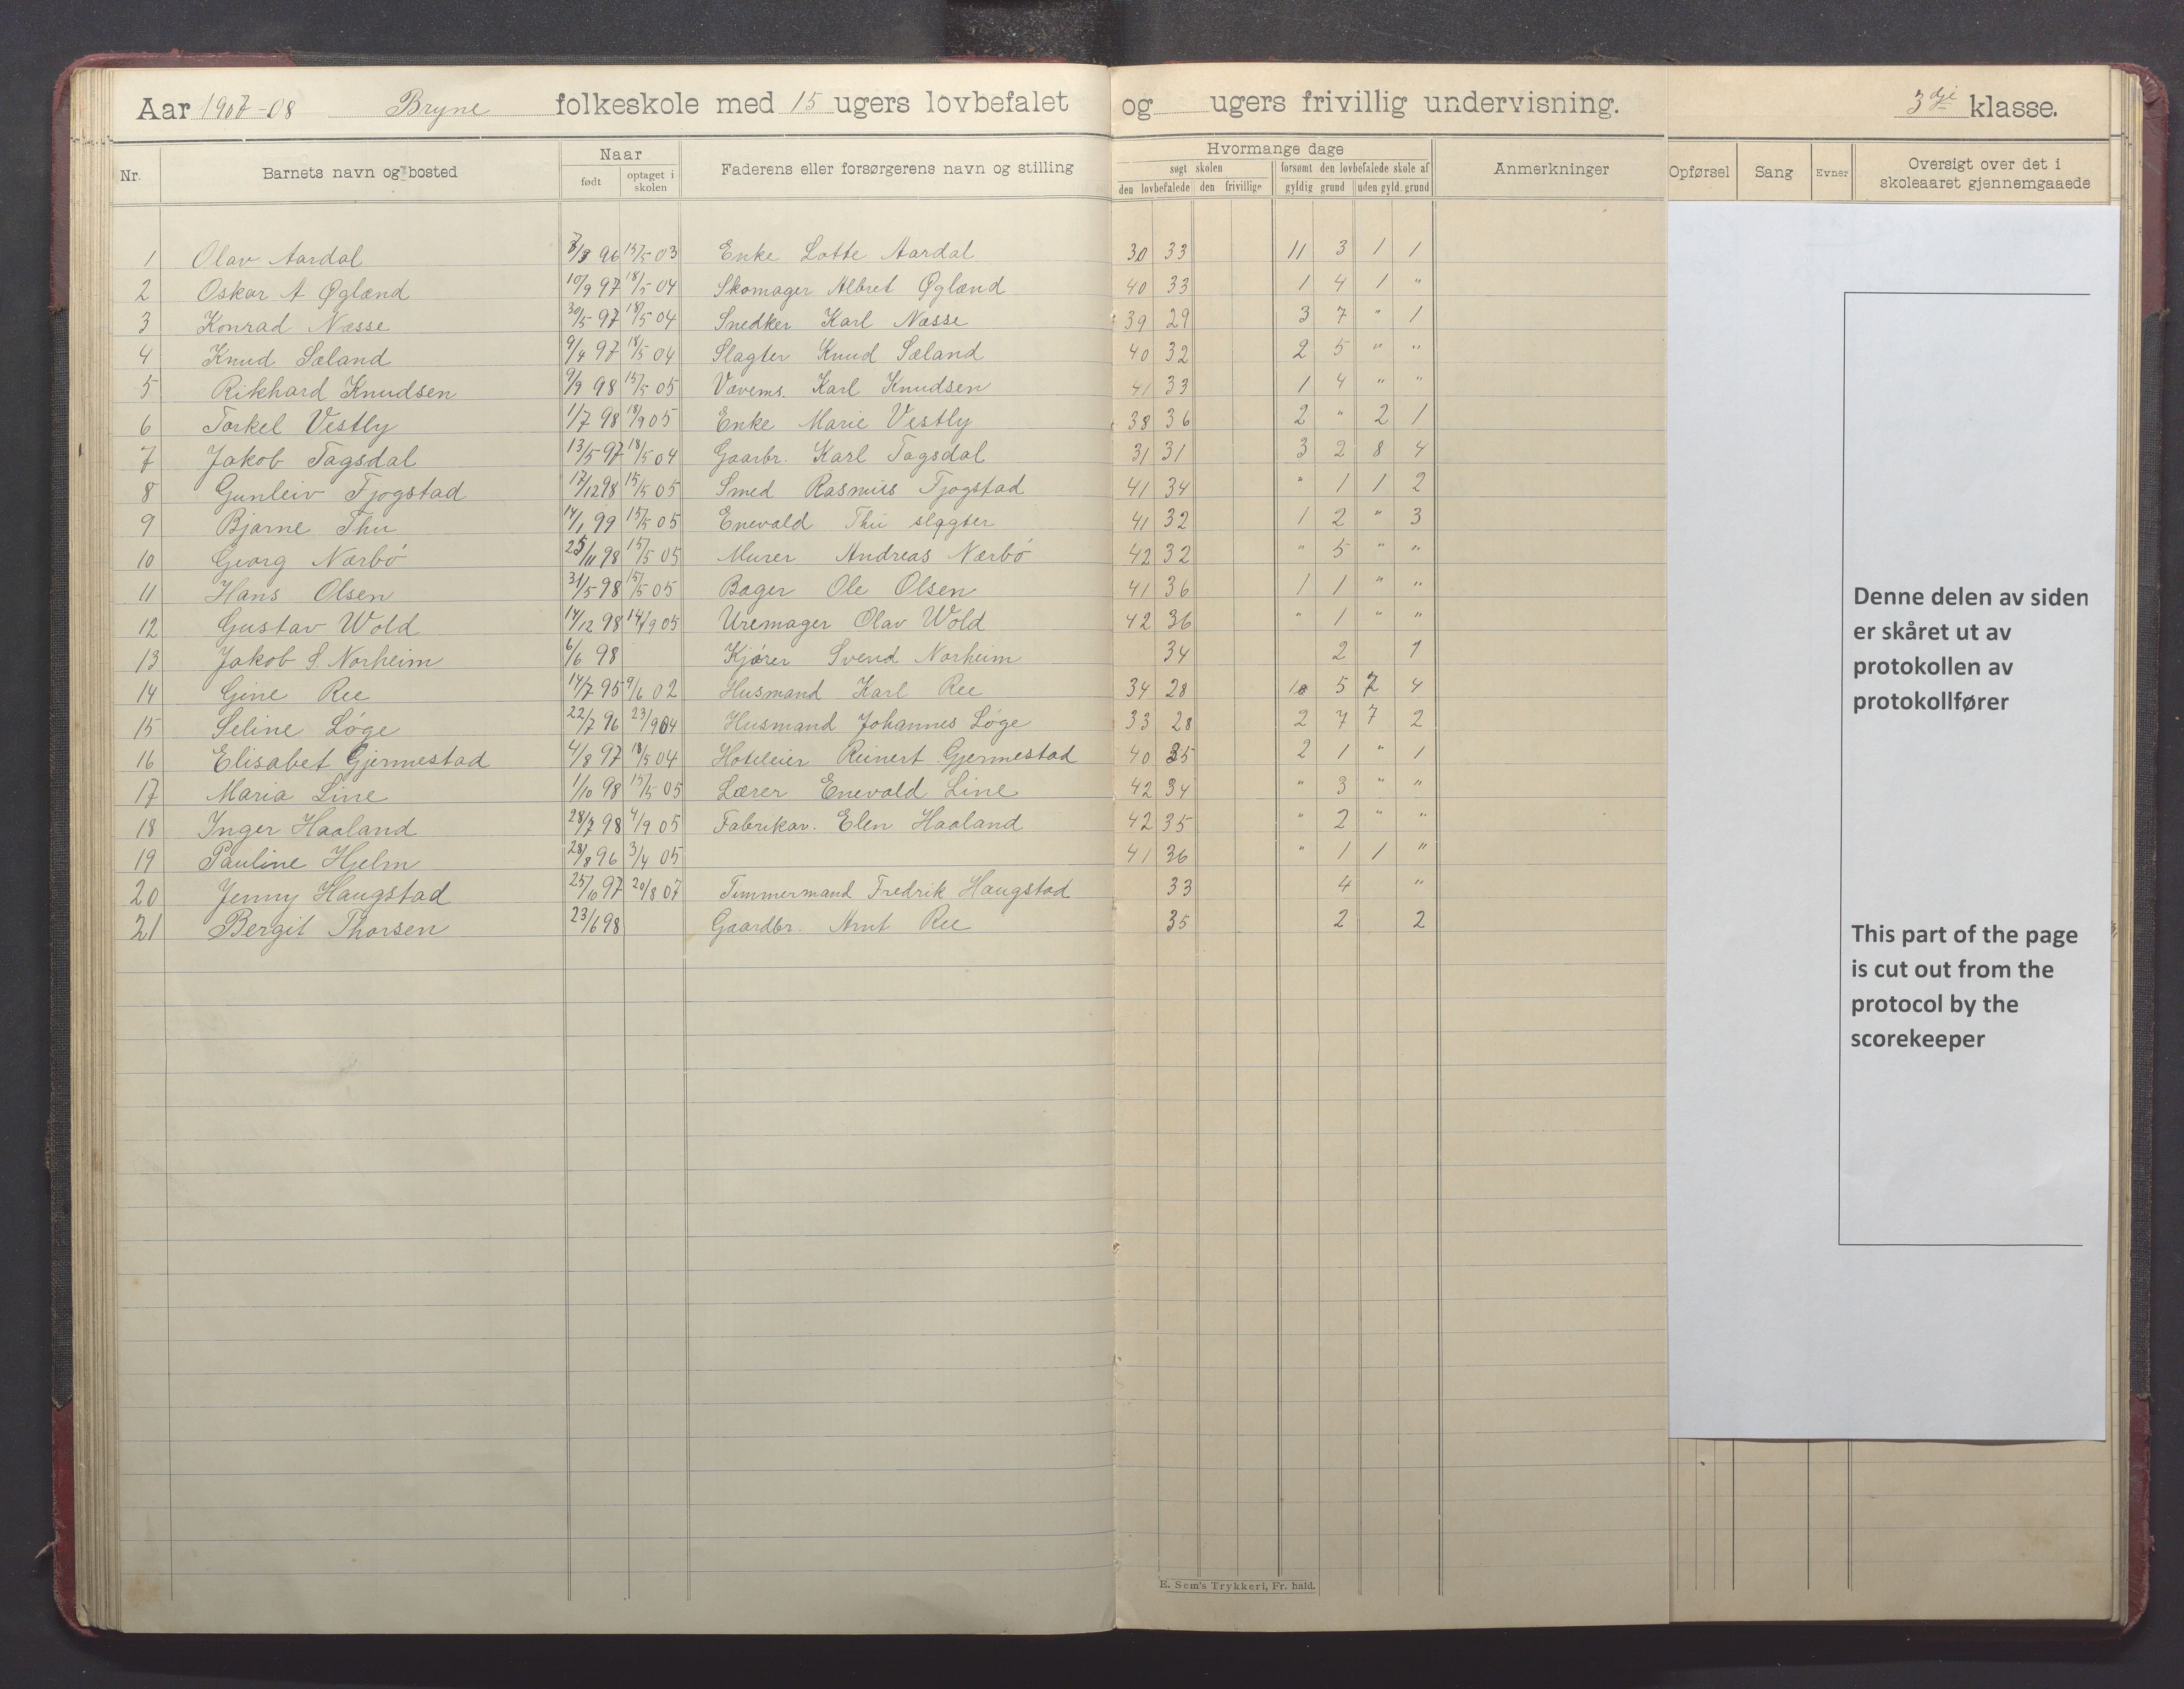 Aar 1907-08 Bryne folkeskole med 15 ugers lovbefalet og ugers frivillig undervisning. 3dje klasse.
Nr. Barnets navn og bosted Naar født optaget i skolen Faderens eller forsørgerens navn og stilling Hvormange dage søgt skolen den lovbefalede den frivillige forsømt den lovbefalede skole af gyldig grund uden gyld. grund Anmerkninger Opførsel Sang Evner Oversigt over det i skoleaaret gjennemgaaede
1 Olav Aardal 96 15/5 03 Enke Lotte Aardal 30 33 11 3 1 1
2 Oskar A Øglænd 10/9 97 18/5 04 Skomager Albret Øglænd 40 33 1 4 1 "
3 Konrad Næsse 30/5 97 18/5 04 Snedker Karl Næsse 39 29 3 7 " 1
4 Knud Sæland 9/4 97 18/5 04 Slagter Knud Sæland 40 32 2 5 " "
5 Rikhard Knudsen 9/9 98 15/5 05 Vævems. Karl Knudsen 41 33 1 4 " "
6 Torkel Vestly 1/7 98 18/9 05 Enke Marie Vestly 38 36 2 " 2 1
7 Jakob Tagsdal 13/5 97 18/5 04 Gaarbr. Karl Tagsdal 31 31 3 2 8 4
8 Gunleiv Tjogstad 17/12 98 15/5 05 Smed Rasmus Tjogstad 41 34 " 1 1 2
9 Bjarne Thu 14/1 99 15/5 05 Enevald Thu slagter 41 32 1 2 " 3
10 Georg Nærbö 25/11 98 15/5 05 Murer Andreas Nærbö 42 32 " 5 " "
11 Hans Olsen 31/5 98 15/5 05 Bager Ole Olsen 41 36 1 1 " "
12 Gustav Wold 14/12 98 14/9 05 Uremager Olav Wold 42 36 " 1 " "
13 Jakob S Norheim 6/6 98 Kjører Svend Norheim 34 2 1
14 Gine Ree 14/7 95 9/6 02 Husmand Karl Ree 34 28 5 7 4
15 Seline Löge 22/7 96 23/9 04 Husmand Johannes Löge 33 28 2 7 7 2
16 Elisabet Gjermestad 4/8 97 18/5 04 Hoteleier Reinert Gjermestad 40 35 2 1 " 1
17 Maria Line 1/10 98 15/5 05 Lærer Enevald Line 42 34 " 3 " "
18 Inger Haaland 28/7 98 4/9 05 Fabrikar. Elen Haaland 42 35 " 2 " "
19 Pauline Hjelm 28/8 96 3/4 05 41 36 " 1 1 "
20 Jenny Haugstad 25/10 97 20/8 07 Timmermand Fredrik Haugstad 33 4 "
21 Bergit Thorsen 23/6 98 Gaardbr. Arnt Ree 35 2 2
Denne delen av siden
er skåret ut av
protokollen av
protokollfører
This part of the page
is cut out from the
protocol by the
scorekeeper
E. Sem's Trykkeri, Fr. hald.